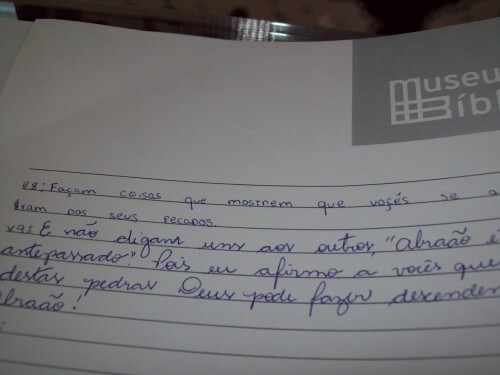 Museu
Bíbl
v.8: Façam coisas que mostrem que vocês se a
ram dos seus pecados.
v.9: E não digam uns aos outros, "Abraão é
antepassado". Pois eu afirmo a vocês que
destas pedras Deus pode fazer descenden
Abraão!
: